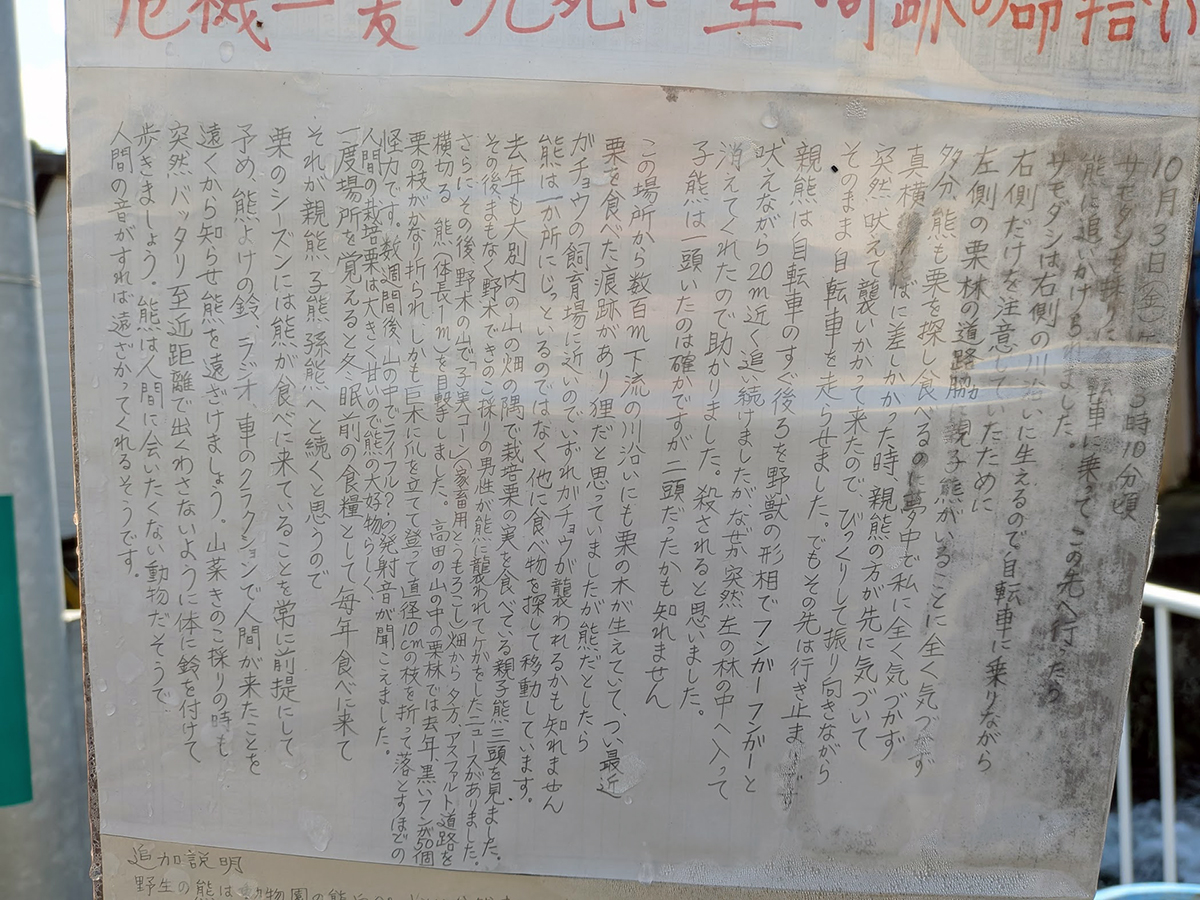 危機一髪・九死に一生・奇跡の命拾い
10月3日(金) 5時10分頃
サモダシを採りに自転車に乗って この先へ行ったら
熊に追いかけられました。
サモダシは右側の川沿いに生えるので自転車に乗りながら
右側だけを注意していたために
左側の栗林の道路脇に親子熊がいることに全く気づかず
多分、熊も栗を探し食べるのに夢中で私に全く気づかず
真横 ばに差しかかった時、親熊の方が先に気づいて
突然吠えて襲いかかって来たので、びっくりして振り向きながら
そのまま自転車を走らせました。でもその先は行き止まり
親熊は自転車のすぐ後ろを野獣の形相でフンガーフンガーと
吠えながら20m近く追い続けましたがなぜか突然左の林の中へ入って
消えてくれたので助かりました。殺されると思いました。
子熊は一頭いたのは確かですが二頭だったかも知れません
この場所から数百m下流の川沿いにも栗の木が生えていて、つい最近
栗を食べた痕跡があり狸だと思っていましたが熊だとしたら
ガチョウの飼育場に近いのでいずれガチョウが襲われるかも知れません
熊は一か所にじっといるのではなく他に食べ物を探して移動しています。
去年も大別内の山の畑の隅で栽培栗の実を食べている親子熊三頭を見ました。
その後まもなく野木できのこ採りの男性が熊に襲われてケガをしたニュースがありました。
さらにその後野木の山で子実コーン(家畜用とうもろこし)畑から夕方、アスファルト道路を
横切る 熊(体長1m)を目撃しました。 高田の山の中の栗林では去年、黒いフンが50個
栗の枝がかなり折られ、しかも巨木に爪を立てて登って直径10cmの枝を折って落とすほどの
怪力です。数週間後、山の中でライフル?の発射音が聞こえました。
人間の栽培栗は大きく甘いので熊の大好物らしく、
一度場所を覚えると冬眠前の食糧として毎年食べに来て
それが親熊、子熊、孫熊へと続くと思うので
栗のシーズンには熊が食べに来ていることを常に前提にして
予め、熊よけの鈴、ラジオ 車のクラクションで人間が来たことを
遠くから知らせ熊を遠ざけましょう。山菜きのこ採りの時も
突然バッタリ至近距離で出くわさないように体に鈴を付けて
歩きましょう。熊は人間に会いたくない動物だそうで
人間の音がすれば遠ざかってくれるそうです。
追加説明
野生の熊は動物園の熊